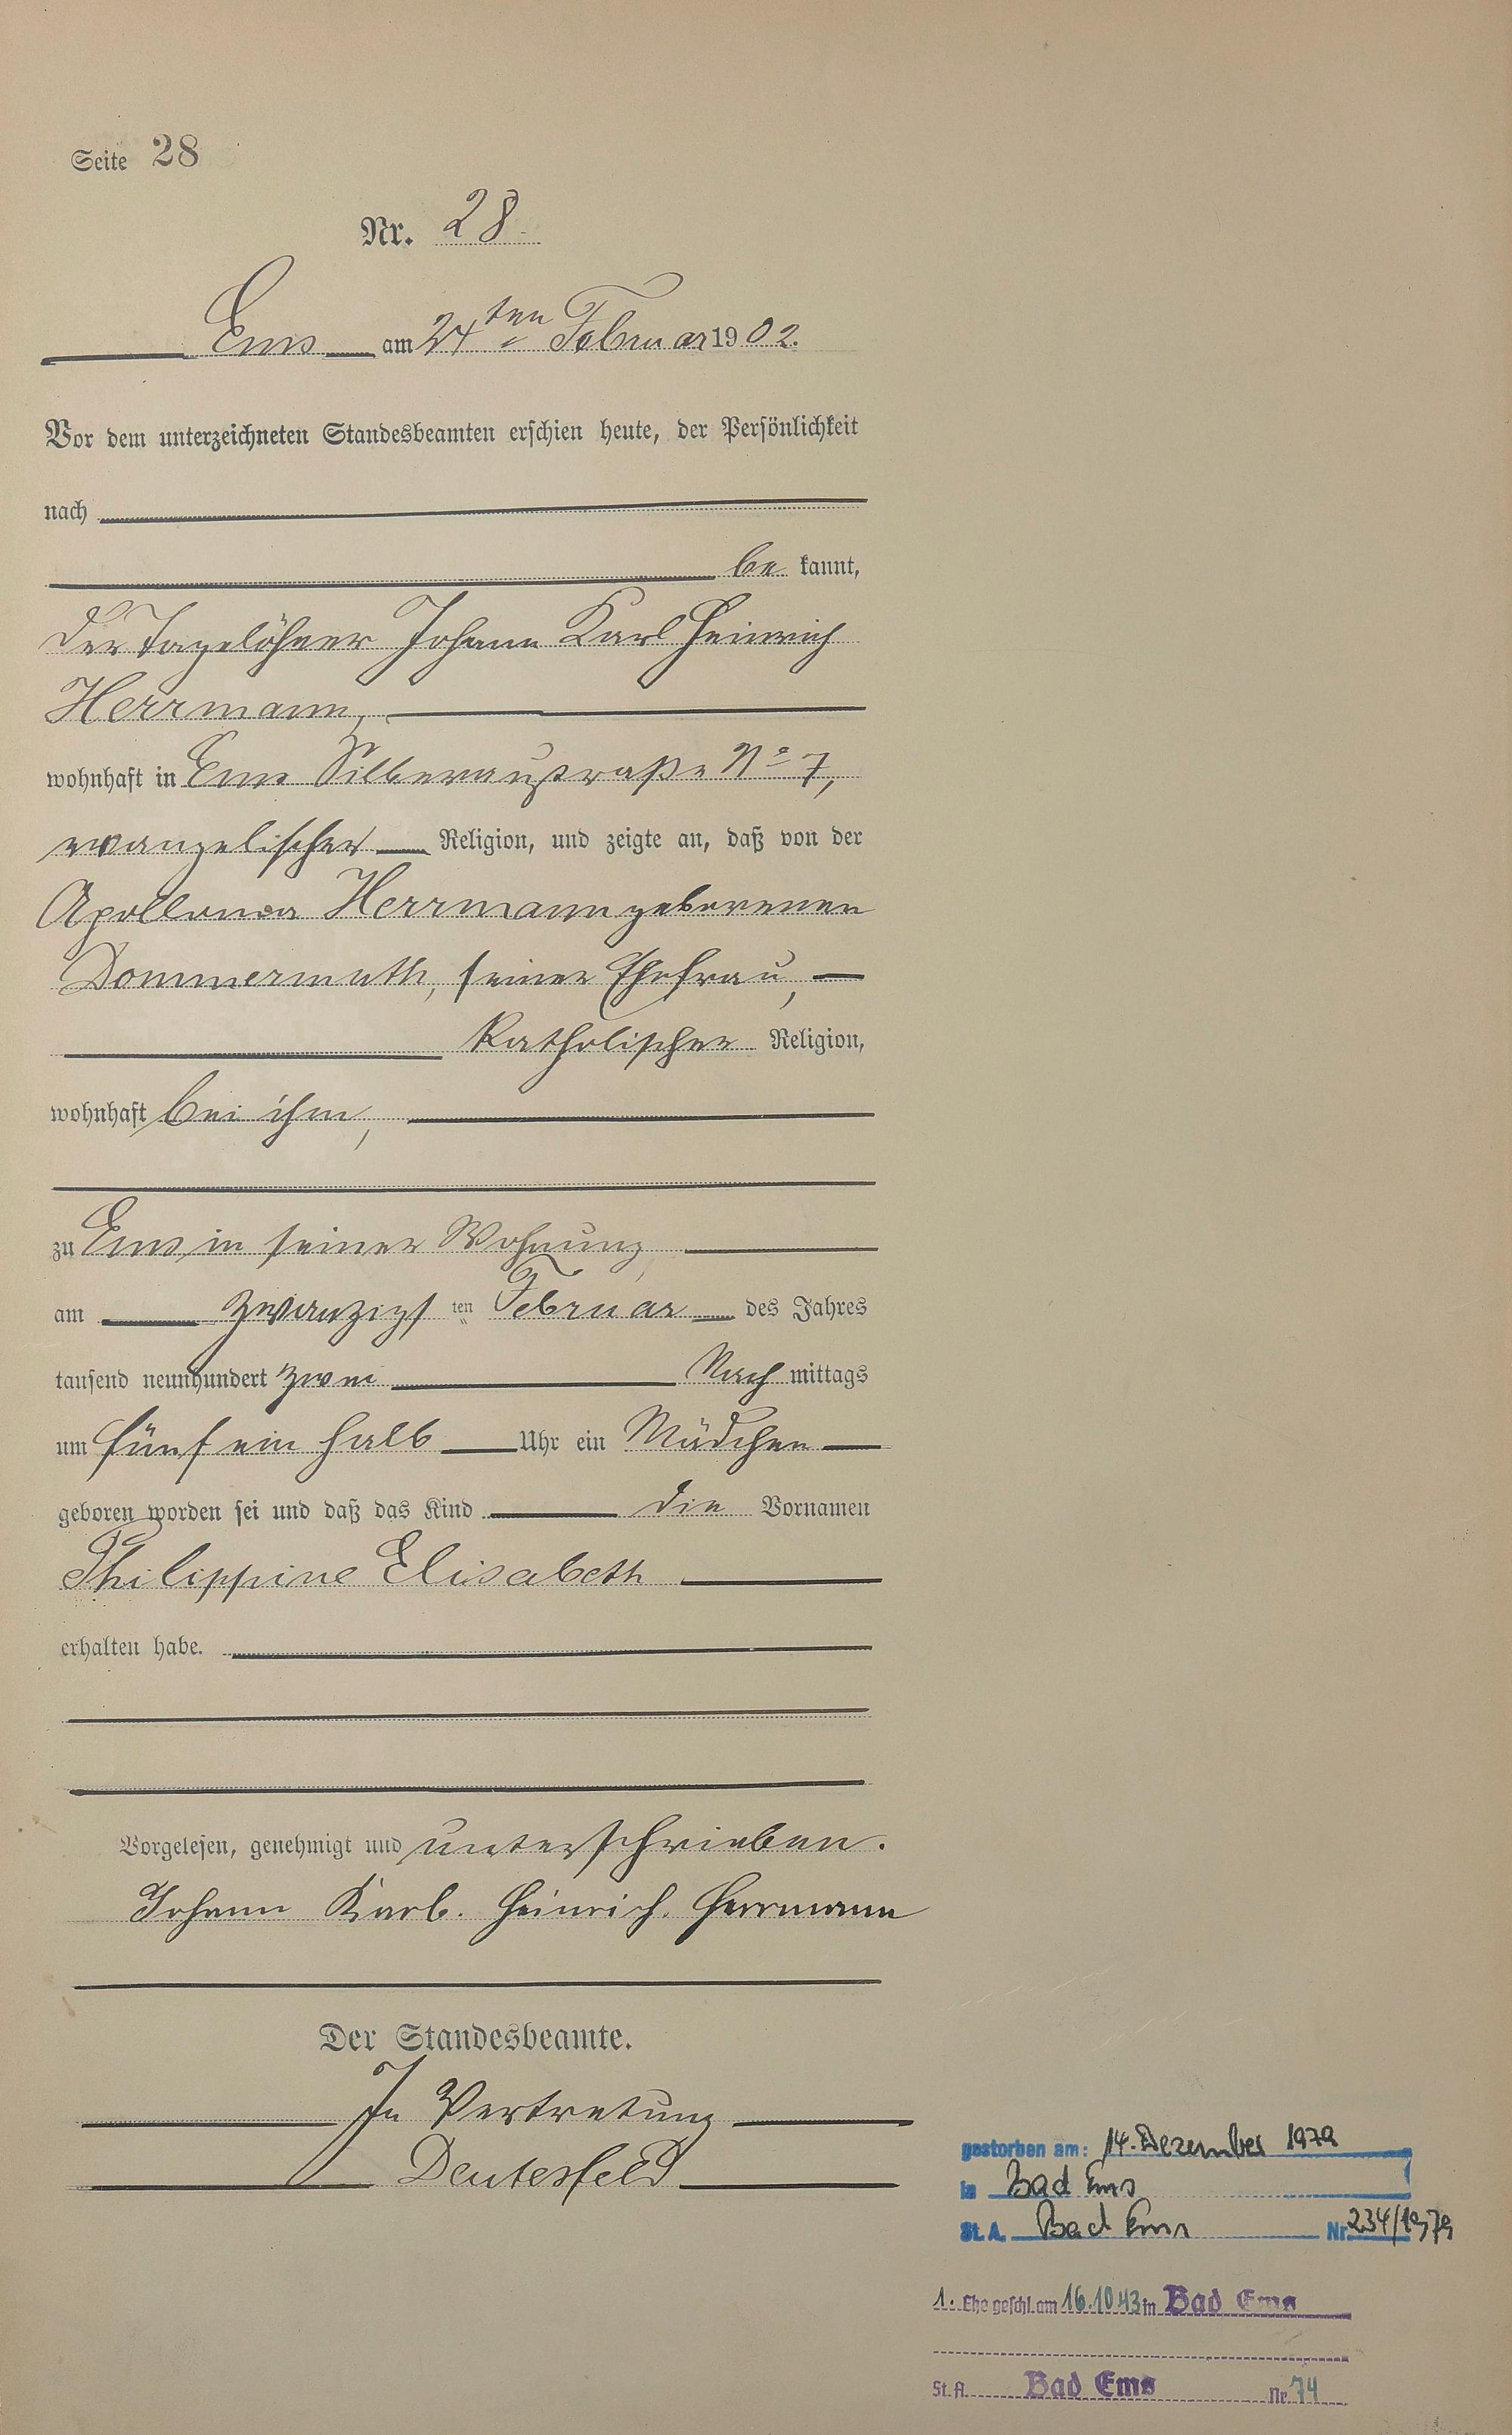 Seite 28
Nr. 28.
Ems am 24ten Februar 1902.
Vor dem unterzeichneten Standesbeamten erschien heute, der Persönlichkeit
nach
be kannt,
der Tagelöhner Johann Karl Heinrich
Herrmann,
wohnhaft in Ems Silberaustraße No 7,
evangelischer Religion, und zeigte an, daß von der
Apollonia Herrmann geborenen
Dommermuth, seiner Ehefrau,
katholischer Religion,
wohnhaft bei ihm,
zu Ems in seiner Wohnung,
am zwanzigsten Februar des Jahres
tausend neunhundert zwei Nach mittags
um fünf ein halb Uhr ein Mädchen
geboren worden sei und daß das Kind die Vornamen
Philippine Elisabeth
erhalten habe.
Vorgelesen, genehmigt und unterschrieben.
Johann Karl. Heinrich. Herrmann
Der Standesbeamte.
In Vertretung
Deutesfeld
gestorben am: 14. Dezember 1979
in Bad Ems
St. A. Bad Ems Nr. 234/1979
1. Ehe geschl. am 16.10.43 in Bad Ems
St. A. Bad Ems Nr. 74